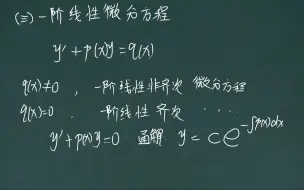 (三)一阶线性微分方程
y′+p(x)y=q(x)
q(x)≠0 , 一阶线性非齐次 微分方程
q(x)=0 , 一阶线性齐次 ····
y′+p(x)y=0 通解 y=ce^{-∫p(x)dx}